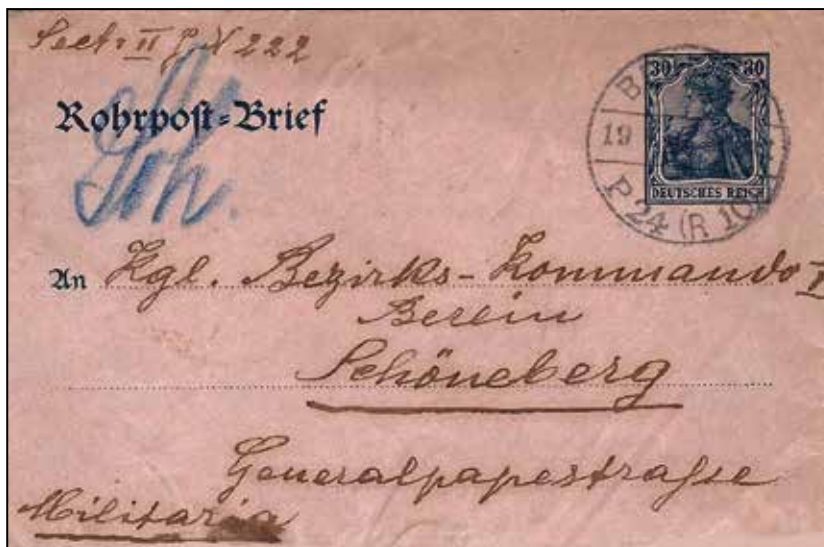 Sect: II J. N 222
30 30
Rohrpost-Brief
19
P. 24 (R 10)
DEUTSCHES REICH
An Kgl. Bezirks-Kommando
Berlin
Schöneberg
Generalpapestrasse
Militaria